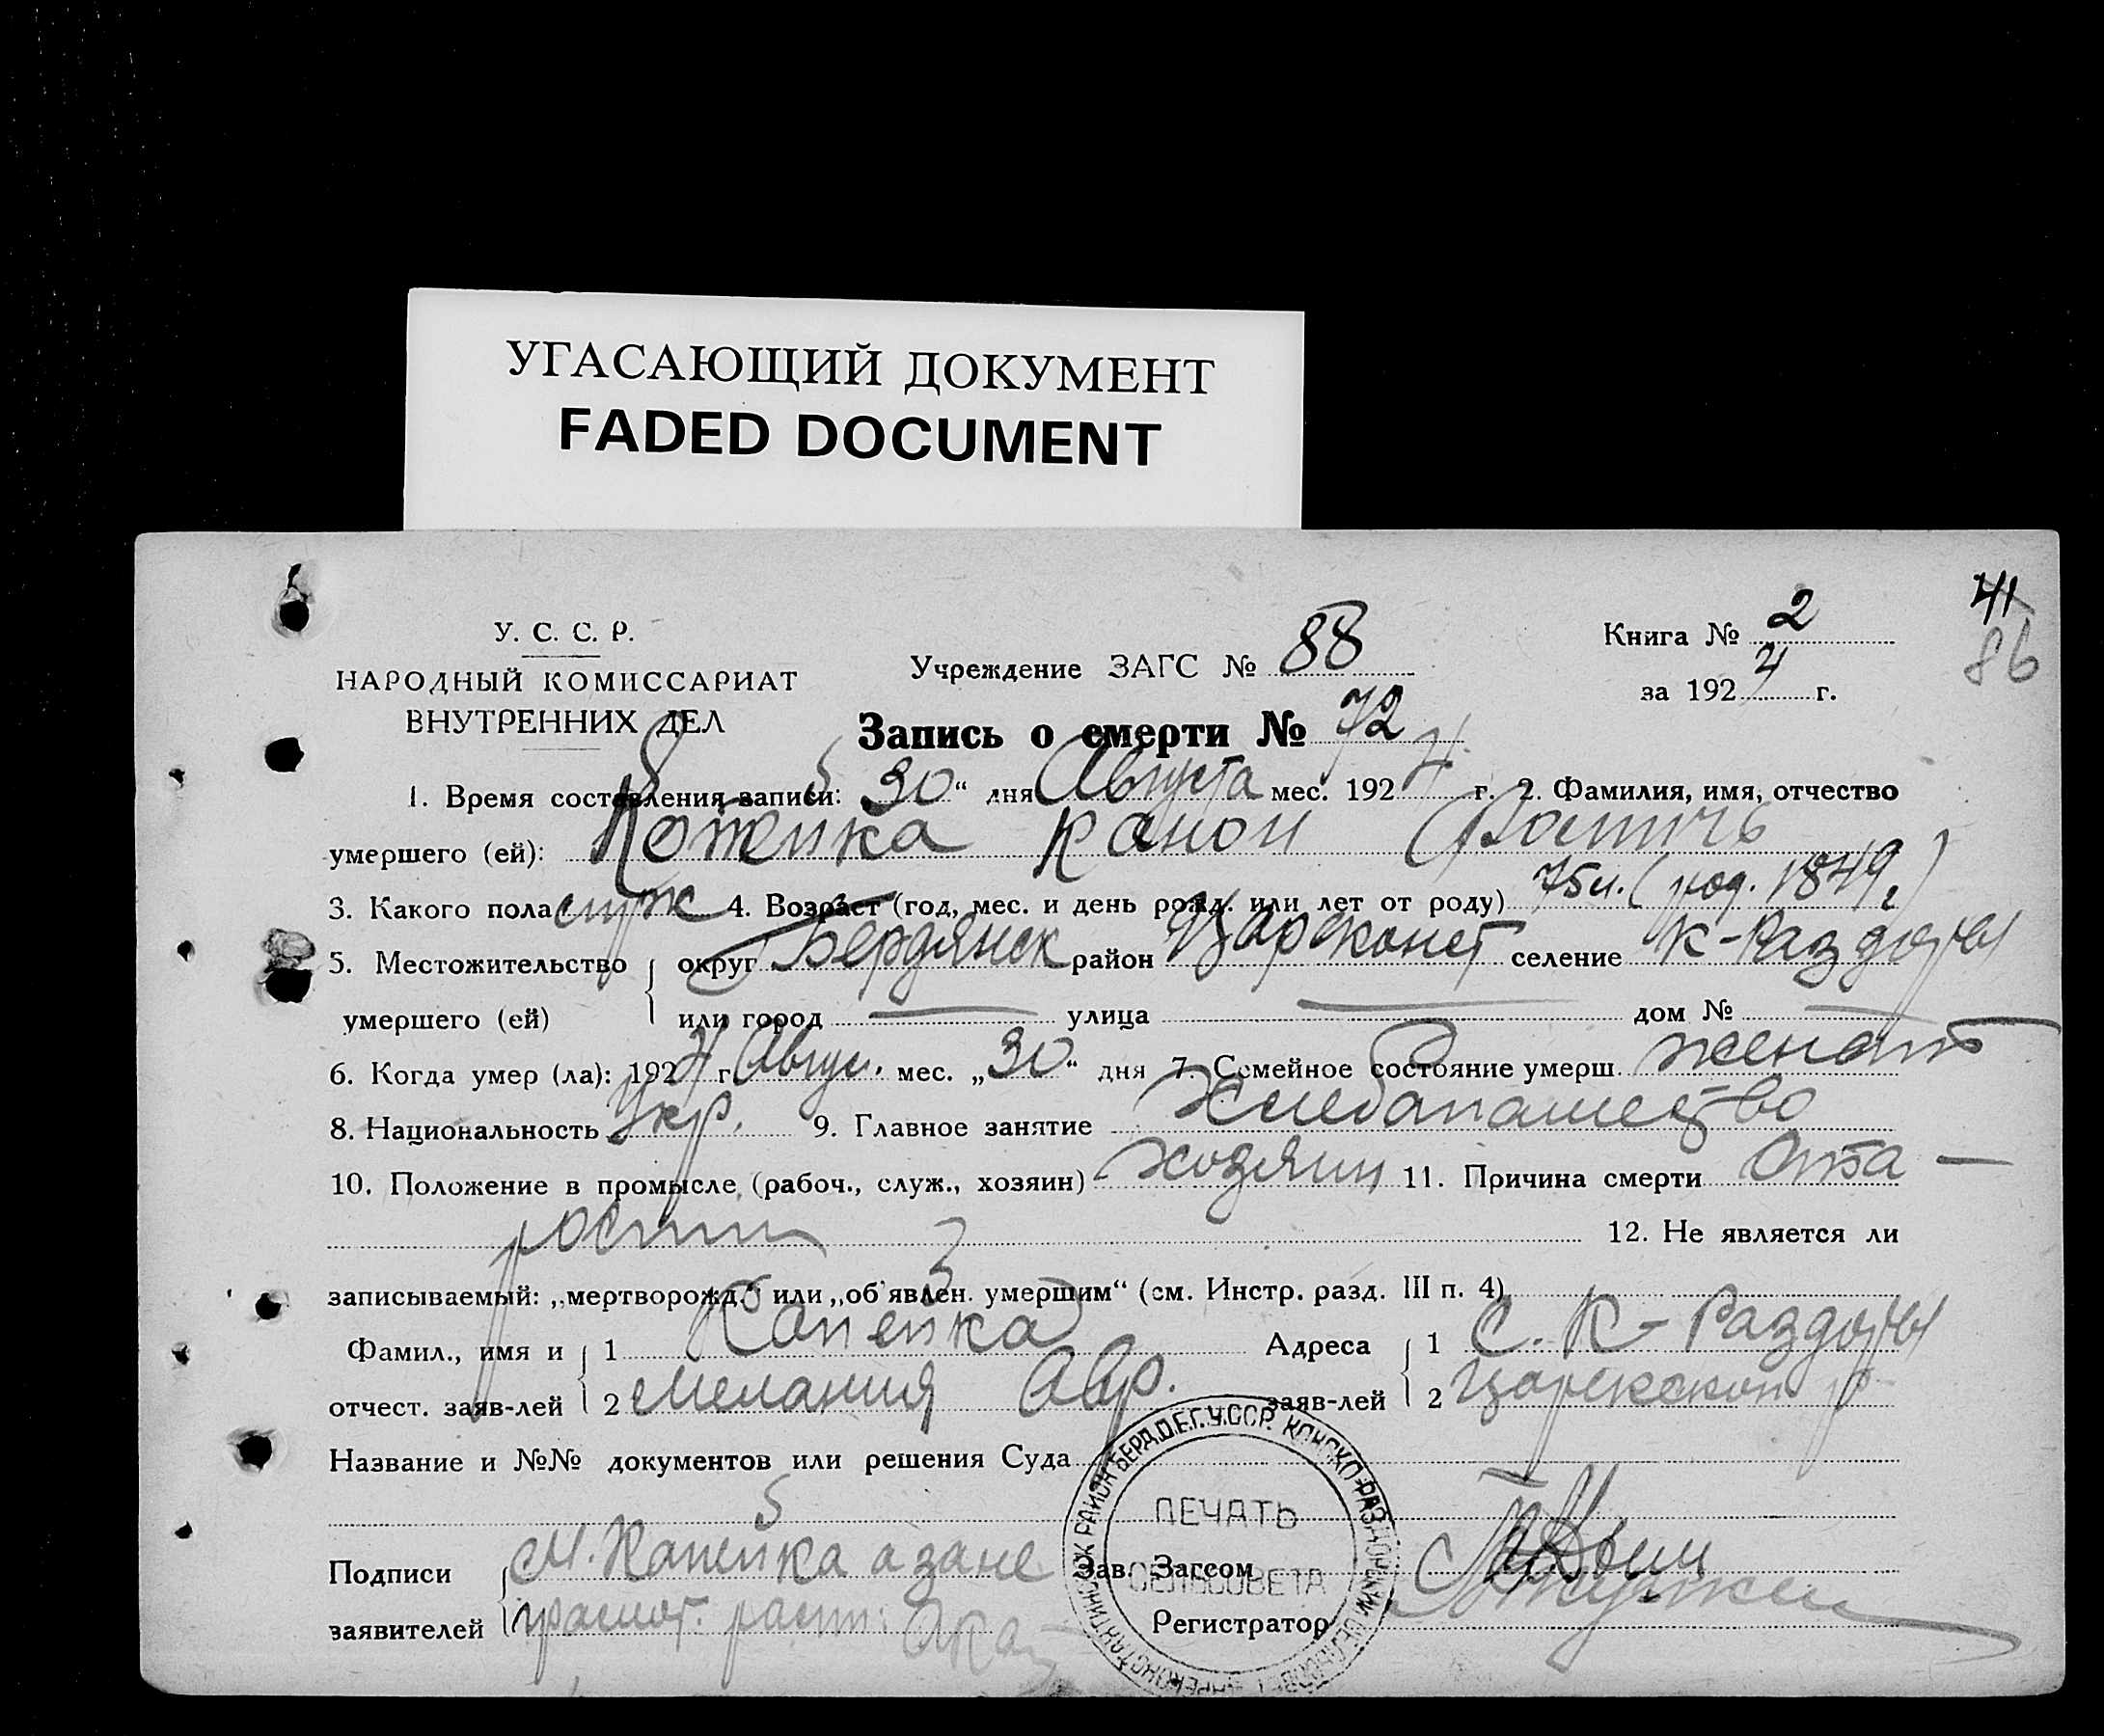 УГАСАЮЩИЙ ДОКУМЕНТ
FADED DOCUMENT
41
86
У. С. С. Р.
НАРОДНЫЙ КОМИССАРИАТ
ВНУТРЕННИХ ДЕЛ
Учреждение ЗАГС № 88
Книга № 2
за 1924 г.
Запись о смерти № 72
1. Время составления записи: „30“ дня Августа мес. 1924 г. 2. Фамилия, имя, отчество
умершего (ей): Копейка Канон
3. Какого пола муж 4. Возраст (год, мес. и день рожд. или лет от роду) 75 л. (род. 1849)
5. Местожительство умершего (ей) округ Бердянск район Царконст селение К-Раздоры
или город — улица — дом № —
6. Когда умер (ла): 1924 г. Авгус. мес. „30“ дня 7. Семейное состояние умерш. женат
8. Национальность Укр. 9. Главное занятие Хлебопашество
10. Положение в промысле (рабоч., служ., хозяин) хозяин 11. Причина смерти От ста-
рости 12. Не является ли
записываемый: „мертворожд.“ или „об'явлен. умершим“ (см. Инстр. разд. III п. 4)
Фамил., имя и отчест. заяв-лей 1 Копейка Адреса заяв-лей 1 С. К-Раздоры
2 Мелания Авр. 2 Царекскон р
Название и №№ документов или решения Суда
Подписи заявителей М. Копейка а за не
грамот. расп.
Зав. Загсом
Регистратор
ПЕЧАТЬ
СЕЛЬСОВЕТА